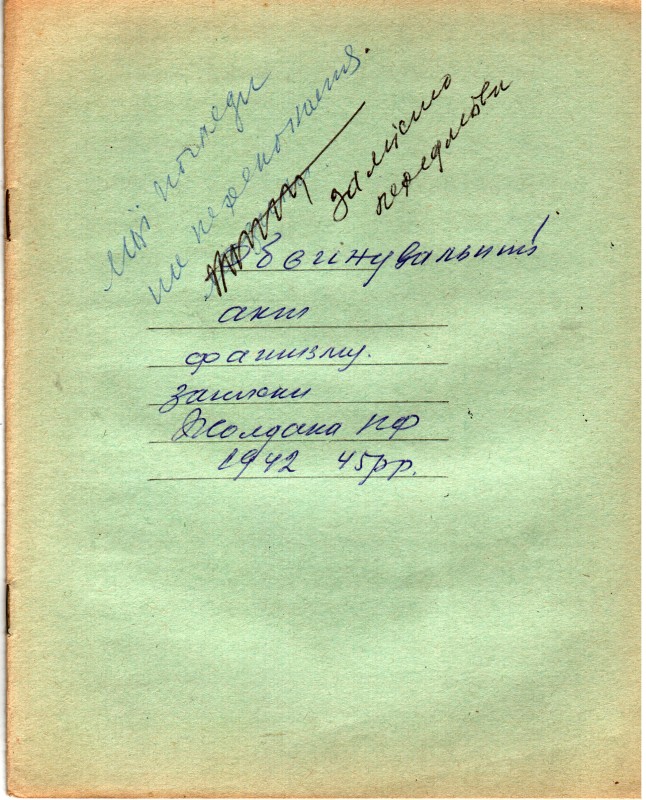 Мої погляди
ти переконання.
замісто
передмови
Звинувальний
акт
фашизму.
записки
Жолдака ПФ
1942 45рр.